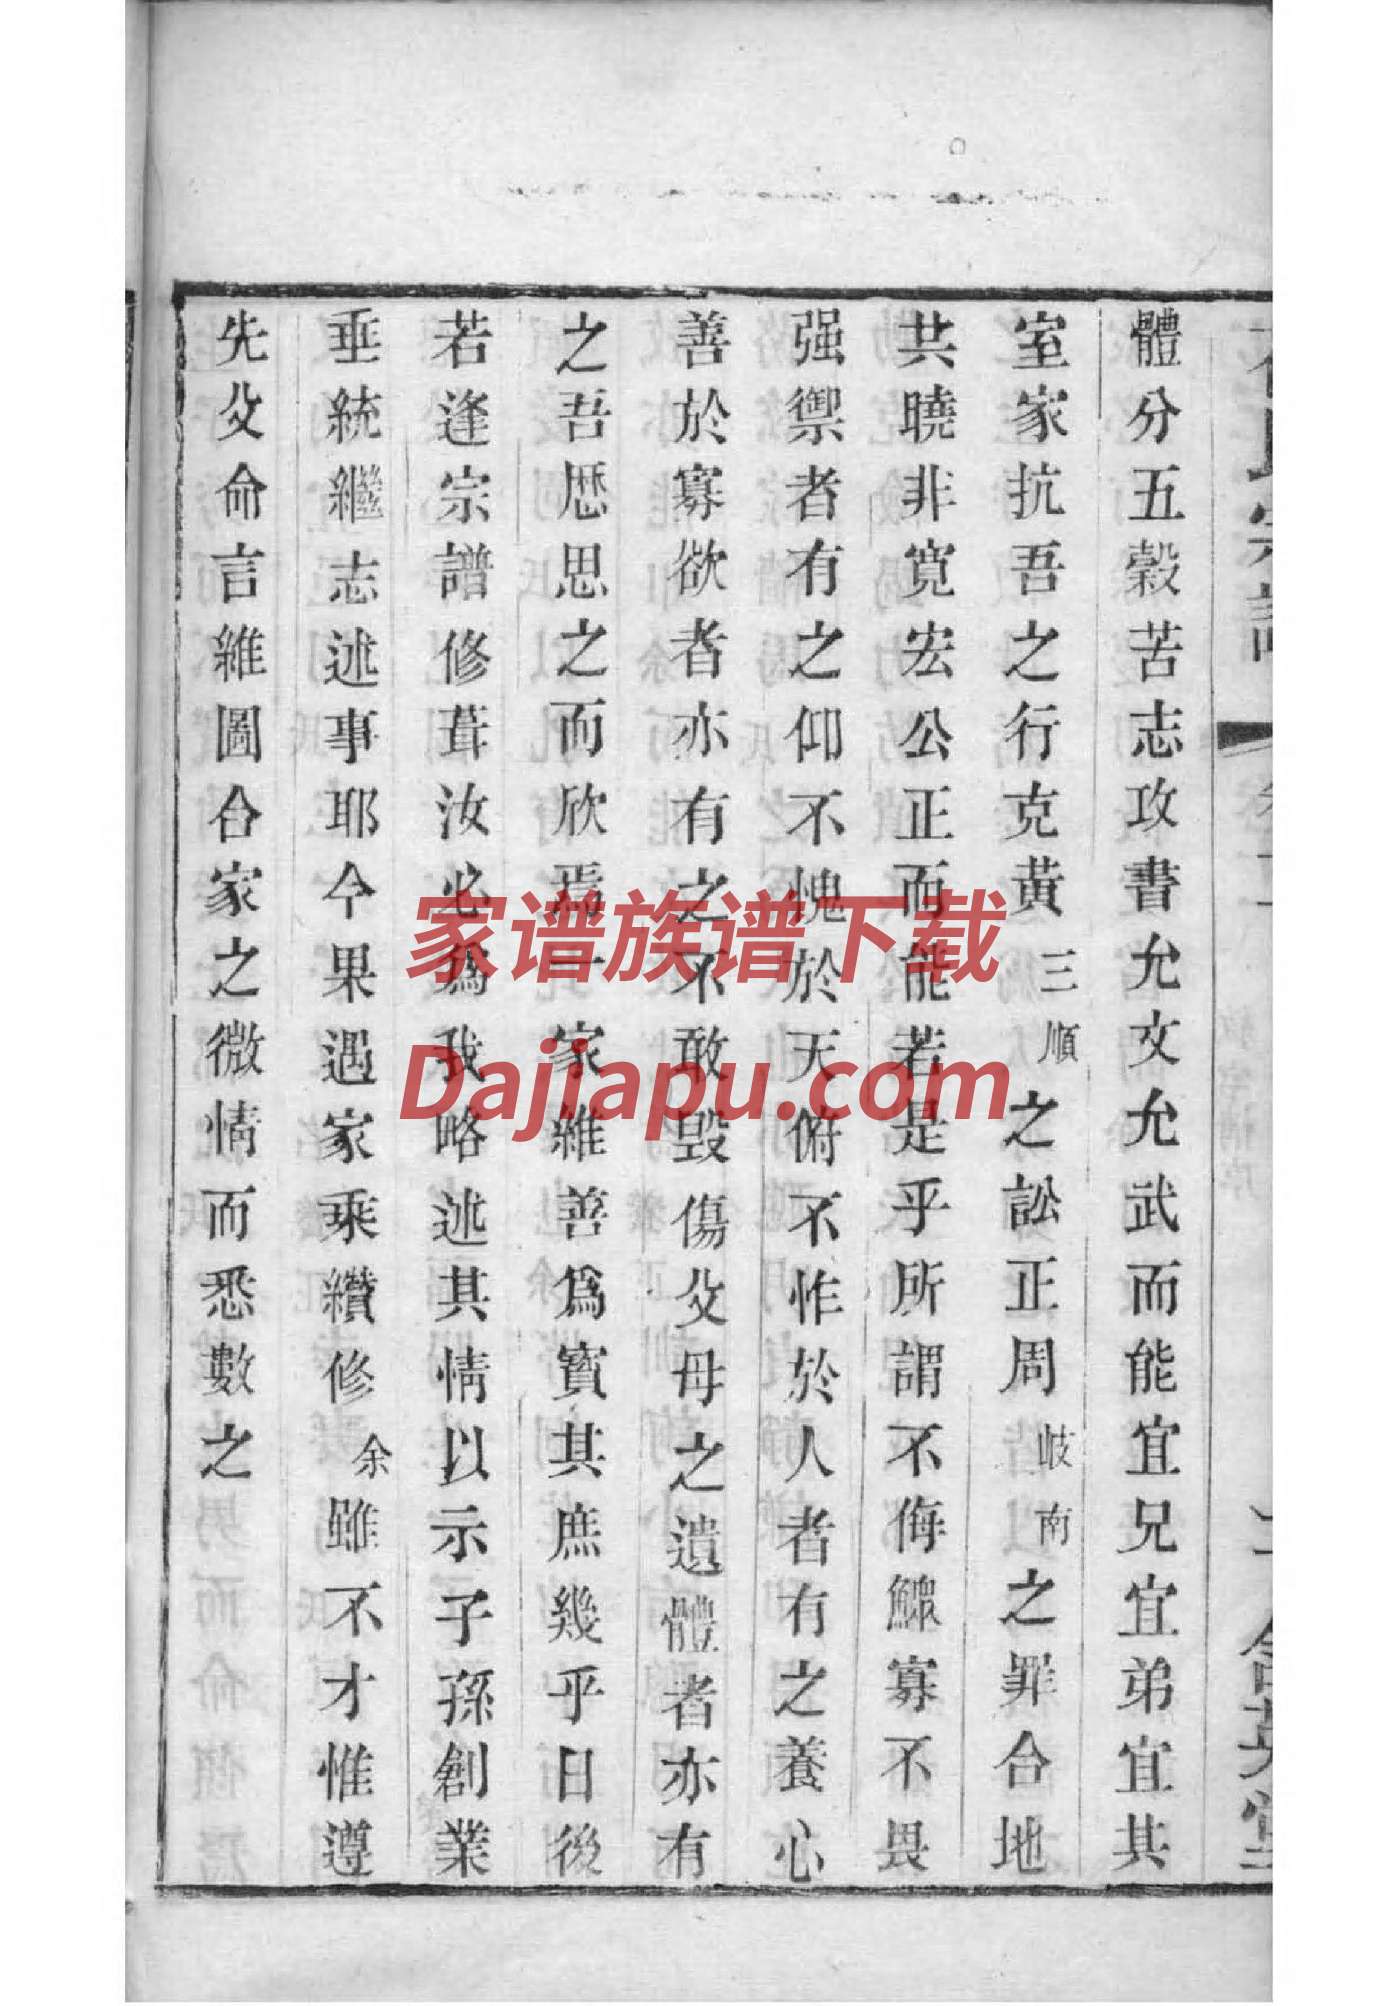 體分五穀苦志攻書允文允武而能宜兄宜弟宜其
室家抗吾之行克黃三順之訟正周岐南之罪合地
共曉非寬宏公正而能若是乎所謂不侮鰥寡不畏
强禦者有之仰不愧於天俯不怍於人者有之養心
善於寡欲者亦有之不敢毀傷父母之遺體者亦有
之吾歷思之而欣焉一家維善爲寳其庶幾乎日後
若逢宗譜修葺汝必爲我略述其情以示子孫創業
垂統繼志述事耶今果遇家乘纘修余雖不才惟遵
先父命言維圖合家之微情而悉數之
家谱族谱下载
Dajiapu.com